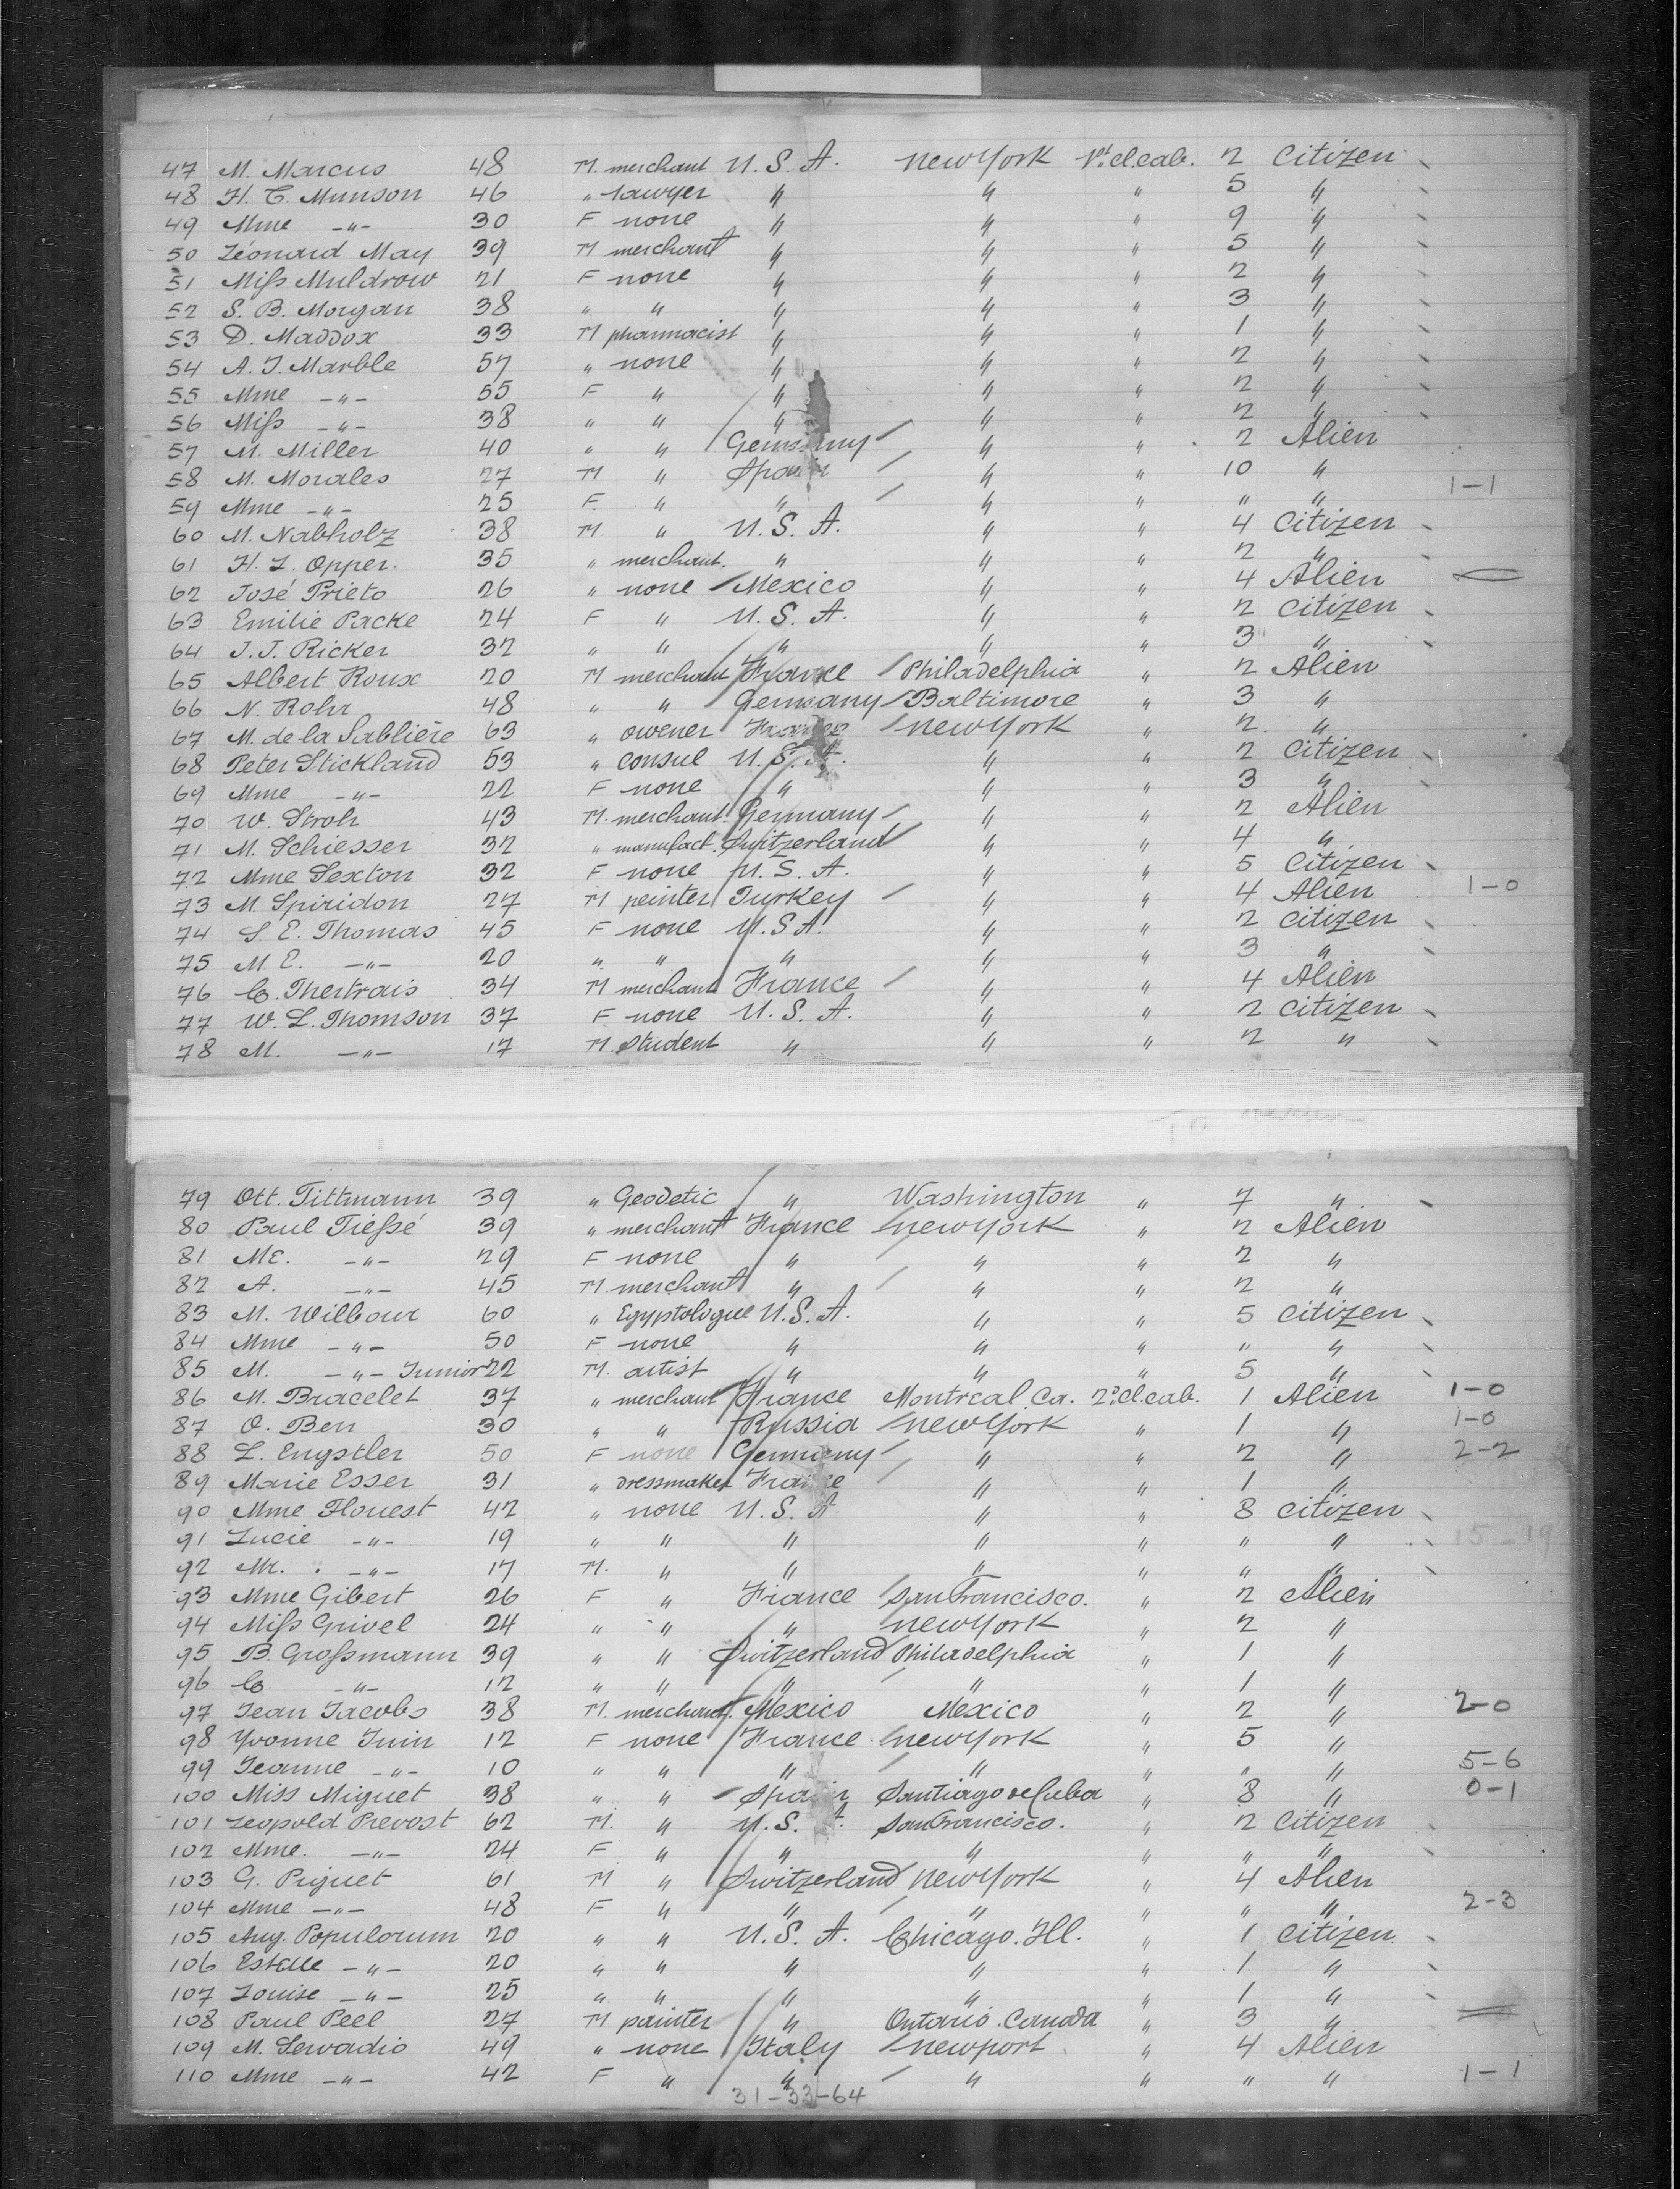 47 M. Marcus 48 M. merchant U. S. A. New York 1st cl. cab. 2 Citizen
48 H. C. Munson 46 " lawyer " " " 5 "
49 Mme -"- 30 F none " " " 9 "
50 Léonard May 39 M merchant " " " 5 "
51 Miss Muldrow 21 F none " " " 2 "
52 S. B. Morgan 38 " " " " " 3 "
53 D. Maddox 33 M pharmacist " " " 1 "
54 A. J. Marble 57 " none " " " 2 "
55 Mme -"- 55 F " " " " 2 "
56 Miss -"- 38 " " " " " 2 "
57 M. Miller 40 " " Germany " " 2 Alien
58 M. Morales 27 M " Spain " " 10 "
59 Mme -"- 25 F. " " " " " " 1-1
60 M. Nabholz 38 M. " U. S. A. " " 4 Citizen
61 H. L. Opper. 35 " merchant. " " " 2 "
62 José Prieto 26 " none Mexico " " 4 Alien
63 Emilie Packe 24 F " U. S. A. " " 2 Citizen
64 J. J. Ricker 32 " " " " " 3 "
65 Albert Roux 20 M merchant France Philadelphia " 2 Alien
66 N. Rohr 48 " " Germany Baltimore " 3 "
67 M. de la Sablière 63 " owener France New York " 2 "
68 Peter Stickland 53 " consul U. S. A. " " 2 Citizen
69 Mme -"- 22 F none " " " 3 "
70 W. Stroh 43 M. merchant. Germany " " 2 Alien
71 M. Schiesser 32 " manufact. Switzerland " " 4 "
72 Mme Sexton 32 F none U. S. A. " " 5 Citizen
73 M. Spiridon 27 M peinter Turkey " " 4 Alien 1-0
74 S. E. Thomas 45 F none U. S A. " " 2 Citizen
75 M E. -"- 20 " " " " " 3 "
76 C. Thertrais 34 M merchant France " " 4 Alien
77 W. L. Thomson 37 F none U. S. A. " " 2 Citizen
78 M. -"- 17 M. Student " " " 2 "
79 Ott. Tittmann 39 " Geodetic " Washington " 7 "
80 Paul Tiessé 39 " merchant France New York " 2 Alien
81 ME. -"- 29 F none " " " 2 "
82 A. -"- 45 M. merchant " " " 2 "
83 M. Wilbour 60 " Egyptologue U. S. A. " " 5 Citizen
84 Mme -"- 50 F none " " " " "
85 M. -"- Junior 22 M. artist " " " 5 "
86 M. Bracelet 37 " merchant France Montreal. Ca. 2d cl. cab. 1 Alien 1-0
87 O. Ben 30 " " Russia New York " 1 " 1-0
88 L. Engstler 50 F none Germany " " 2 " 2-2
89 Marie Esser 31 " dressmaker France " " 1 "
90 Mme Flouest 42 " none U. S. A " " 8 Citizen
91 Lucie -"- 19 " " " " " " " 15-19
92 Mr. -"- 17 M. " " " " " "
93 Mme Gibert 26 F " France San Francisco. " 2 Alien
94 Miss Grivel 24 " " " New York " 2 "
95 B. Grossmann 39 " " Switzerland Philadelphia " 1 "
96 C. -"- 12 " " " " " 1 "
97 Jean Jacobs 38 M. merchant. Mexico Mexico " 2 " 2-0
98 Yvonne Juin 12 F none France New York " 5 "
99 Jeanne -"- 10 " " " " " " " 5-6
100 Miss Miguet 38 " " Spain Santiago de Cuba " 8 " 0-1
101 Leopold Prevost 62 M. " U. S. A. San Francisco. " 2 Citizen
102 Mme. -"- 24 F " " " " " "
103 G. Piguet 61 M " Switzerland New York " 4 Alien
104 Mme -"- 48 F " " " " " " 2-3
105 Aug. Populorum 20 " " U. S. A. Chicago. Ill. " 1 Citizen
106 Estelle -"- 20 " " " " " 1 "
107 Louise -"- 25 " " " " " 1 "
108 Paul Peel 27 M painter " Ontario. Canada " 3 "
109 M. Servadio 49 " none Italy Newport " 4 Alien
110 Mme -"- 42 F " " " " " " 1-1
31-33-64